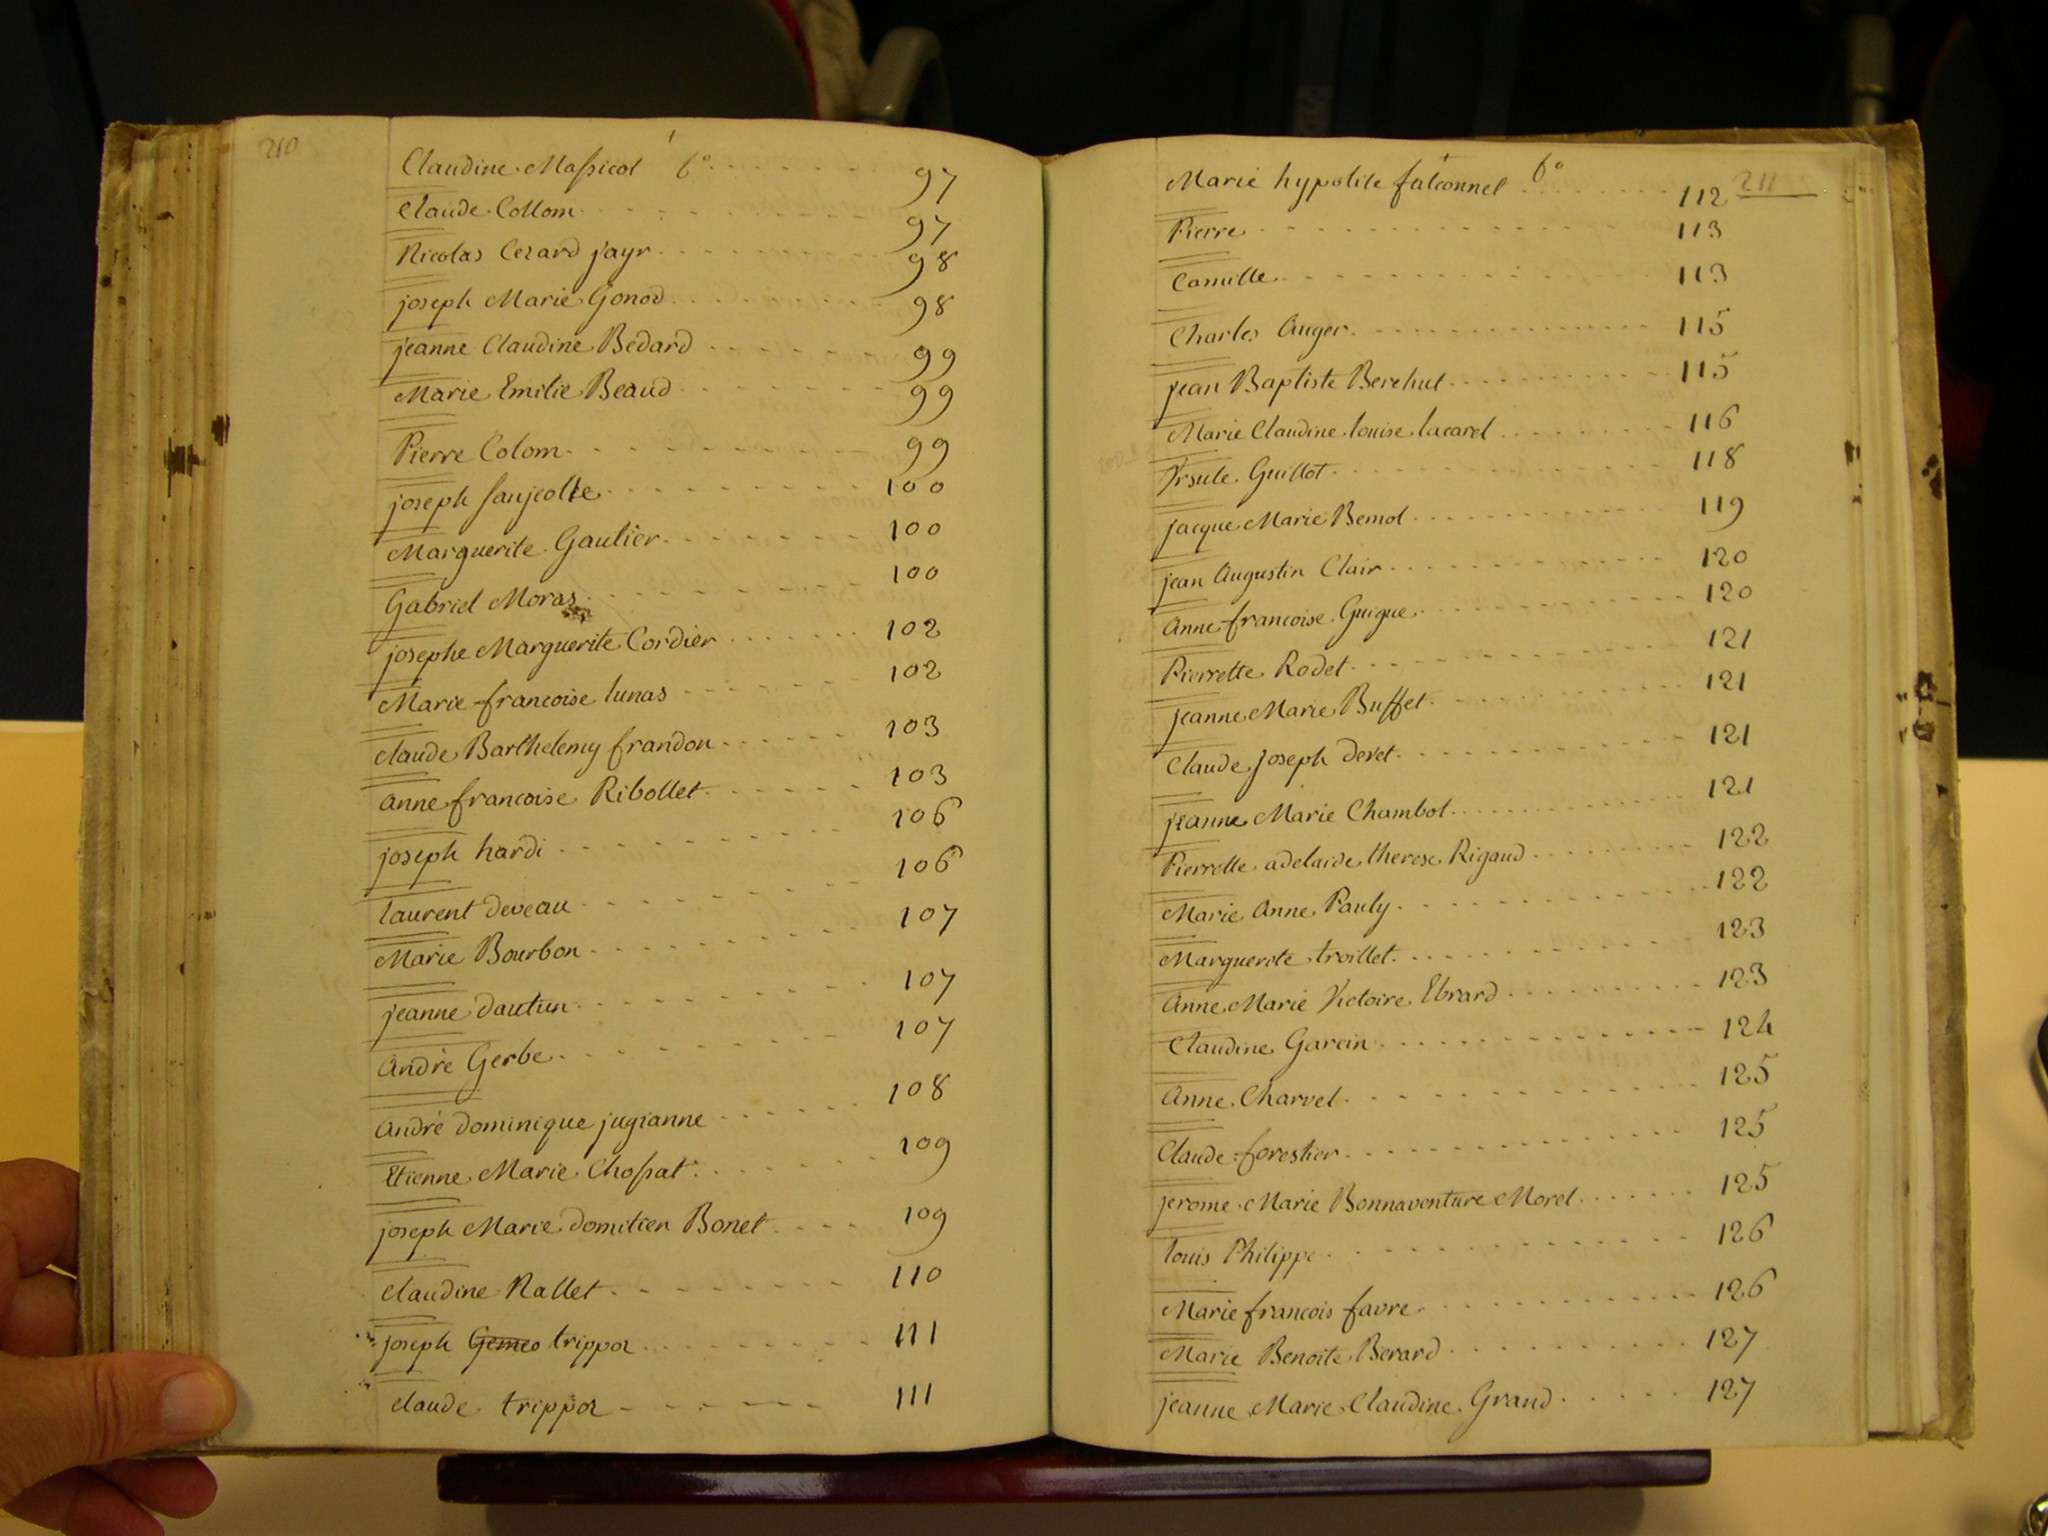 210
Claudine Massicot f° 97
Claude Collom 97
Nicolas Cezard jayr 98
joseph Marie Gonod 98
jeanne Claudine Bedard 99
Marie Emilie Beaud 99
Pierre Colom 99
joseph 100
Marguerite Gautier 100
Gabriel Moras 100
josephe Marguerite Cordier 102
Marie francoise lunas 102
Claude Barthelemy frandon 103
Anne francoise Ribollet 103
joseph hardi 106
laurent deveau 106
Marie Bourbon 107
jeanne dautun 107
André Gerbe 107
André dominique jugianne 108
Etienne Marie Chossat 109
joseph Marie domitien Bonet 109
Claudine Nallet 110
joseph Gemeo trippoz 111
claude trippoz 111
211
Marie hypolite falconnet f° 112
Pierre 113
Camille 113
Charles Auger 115
jean Baptiste Berchut 115
Marie Claudine louise lacarel 116
Ursule Guillot 118
jacque Marie Bemol 119
jean Augustin Clair 120
Anne francoise Guigue 120
Pierrette Rodet 121
jeanne Marie Buffet 121
Claude joseph Devet 121
jeanne Marie Chambot 121
Pierrette adelaide therese Rigaud 122
Marie Anne Pauly 122
Marguerite troillet 123
Anne Marie Victoire Ebrard 123
Claudine Garcin 124
Anne Charvet 125
Claude forestier 125
jerome Marie Bonnaventure Morel 125
louis Philippe 126
Marie francois favre 126
Marie Benoite Berard 127
jeanne Marie Claudine Grand 127